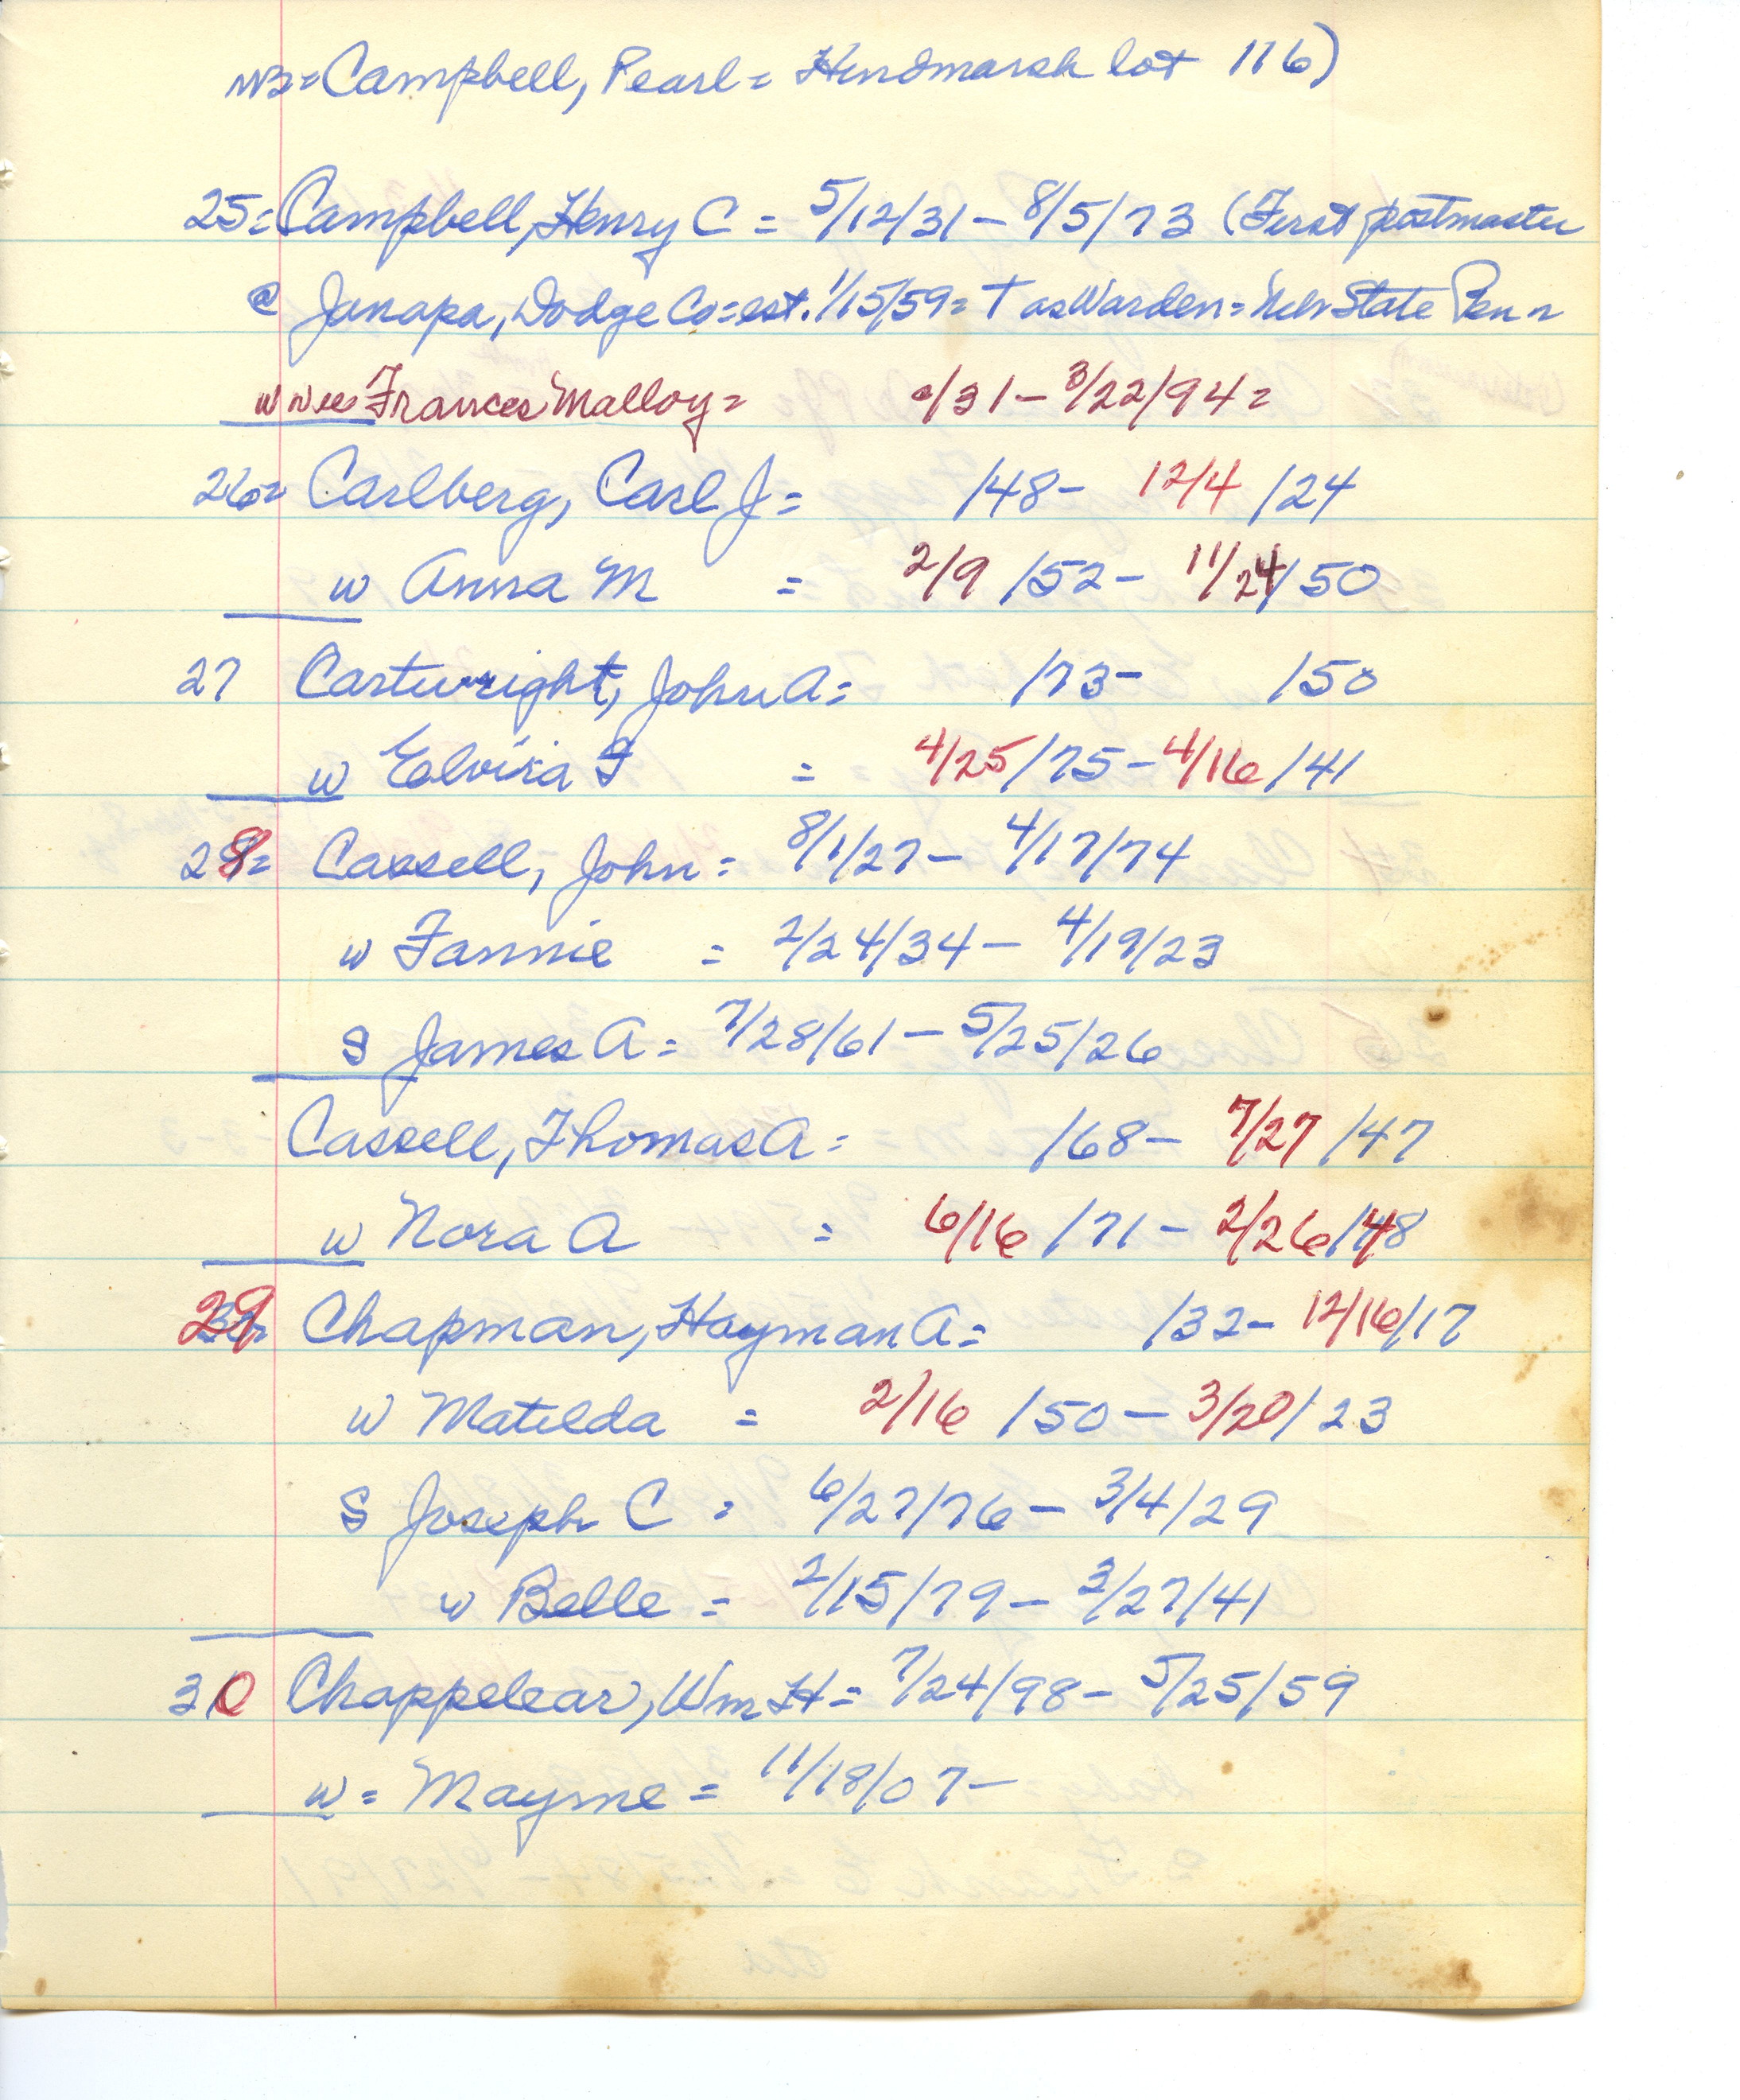 NB= Campbell, Pearl = Hindmarsh lot 116)
25= Campbell, Henry C = 5/12/31 – 8/5/73 (First postmaster
@ Janapa, Dodge Co = est. 1/15/59 = † as Warden = Neb State Penn
w nee Frances Malloy = /31 – 3/22/94 =
26= Carlberg, Carl J = /48 – 12/4 /24
w Anna M = 2/9 /52 – 11/24/50
27 Cartwright, John A = /73 – /50
w Elvira F = 4/25/75 – 4/16/41
28= Cassell, John = 8/1/27 – 4/17/74
w Fannie = 2/24/34 – 4/19/23
S James A = 7/28/61 – 5/25/26
Cassell, Thomas A = /68 – 7/27 /47
w Nora A = 6/16 /71 – 2/26/48
29 Chapman, Hayman A = /32 – 12/16/17
w Matilda = 2/16 /50 – 3/20/23
S Joseph C = 6/27/76 – 3/4/29
w Belle = 2/15/79 – 3/27/41
30 Chappelear, Wm H = 7/24/98 – 5/25/59
w = Mayme = 11/18/07 –